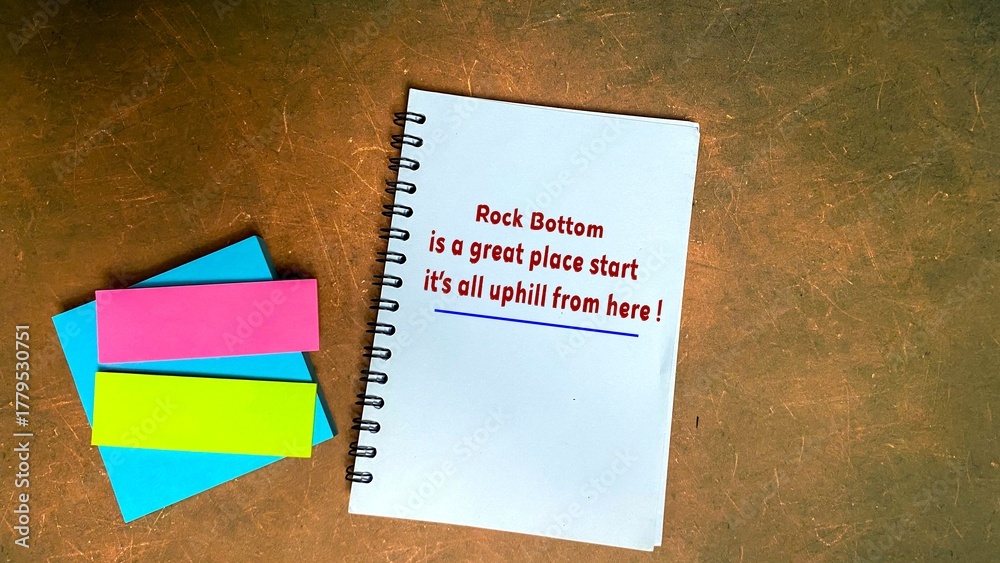 Rock Bottom
is a great place start
it's all uphill from here !
Adobe Stock | #1779530751